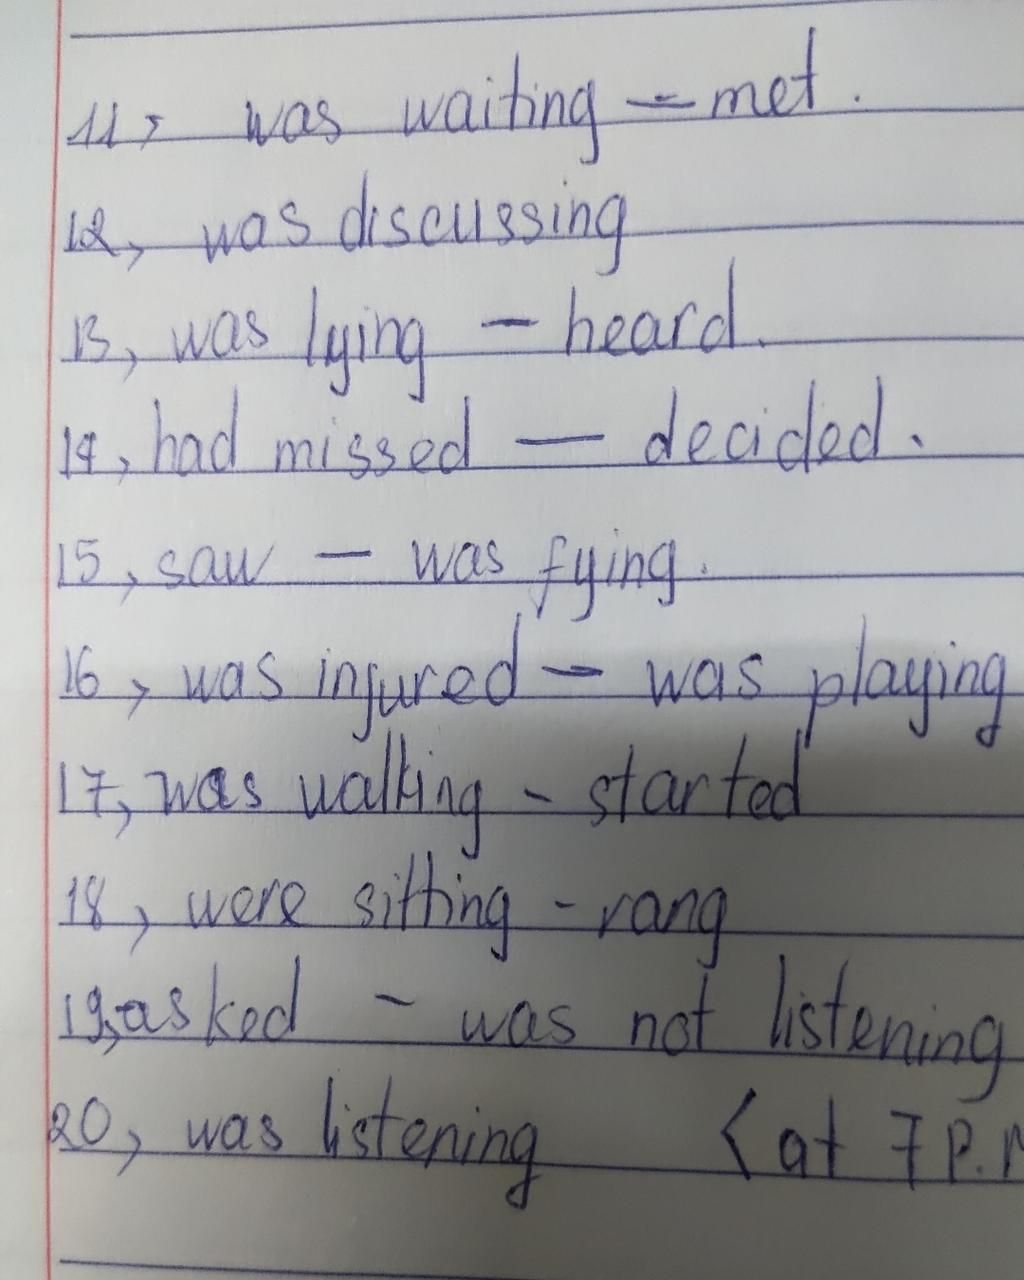 11, was waiting – met.
12, was discussing
13, was lying – heard.
14, had missed — decided.
15, saw – was fying.
16, was injured – was playing
17, was walking - started
18, were sitting - rang
19, asked - was not listening
20, was listening < at 7 p.